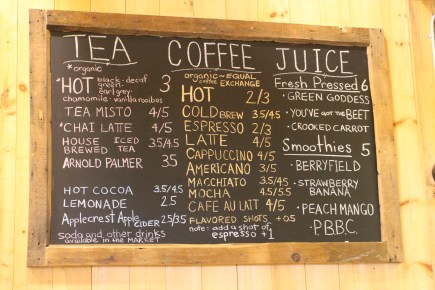 TEA
*organic
*HOT black · decaf 3
green ·
earl grey ·
chamomile · vanilla rooibos
TEA MISTO 4/5
*CHAI LATTE 4/5
HOUSE ICED 3.5/4.5
BREWED TEA
ARNOLD PALMER 3.5
HOT COCOA 3.5/4.5
LEMONADE 2.5
Applecrest Apple CIDER 2.5/3.5
soda and other drinks
available in the MARKET
COFFEE
organic ~ EQUAL
coffee EXCHANGE
HOT 2/3
COLD BREW 3.5/4.5
ESPRESSO 2/3
LATTE 4/5
CAPPUCCINO 4/5
AMERICANO 3/5
MACCHIATO 3.5/4.5
MOCHA 4.5/5.5
CAFE AU LAIT 4/5
FLAVORED SHOTS +0.5
note: add a shot of
espresso +1
JUICE
Fresh Pressed 6
· GREEN GODDESS
· YOU'VE GOT THE BEET
· CROOKED CARROT
Smoothies 5
· BERRYFIELD
· STRAWBERRY
BANANA
· PEACH MANGO
· P.B.B.C.